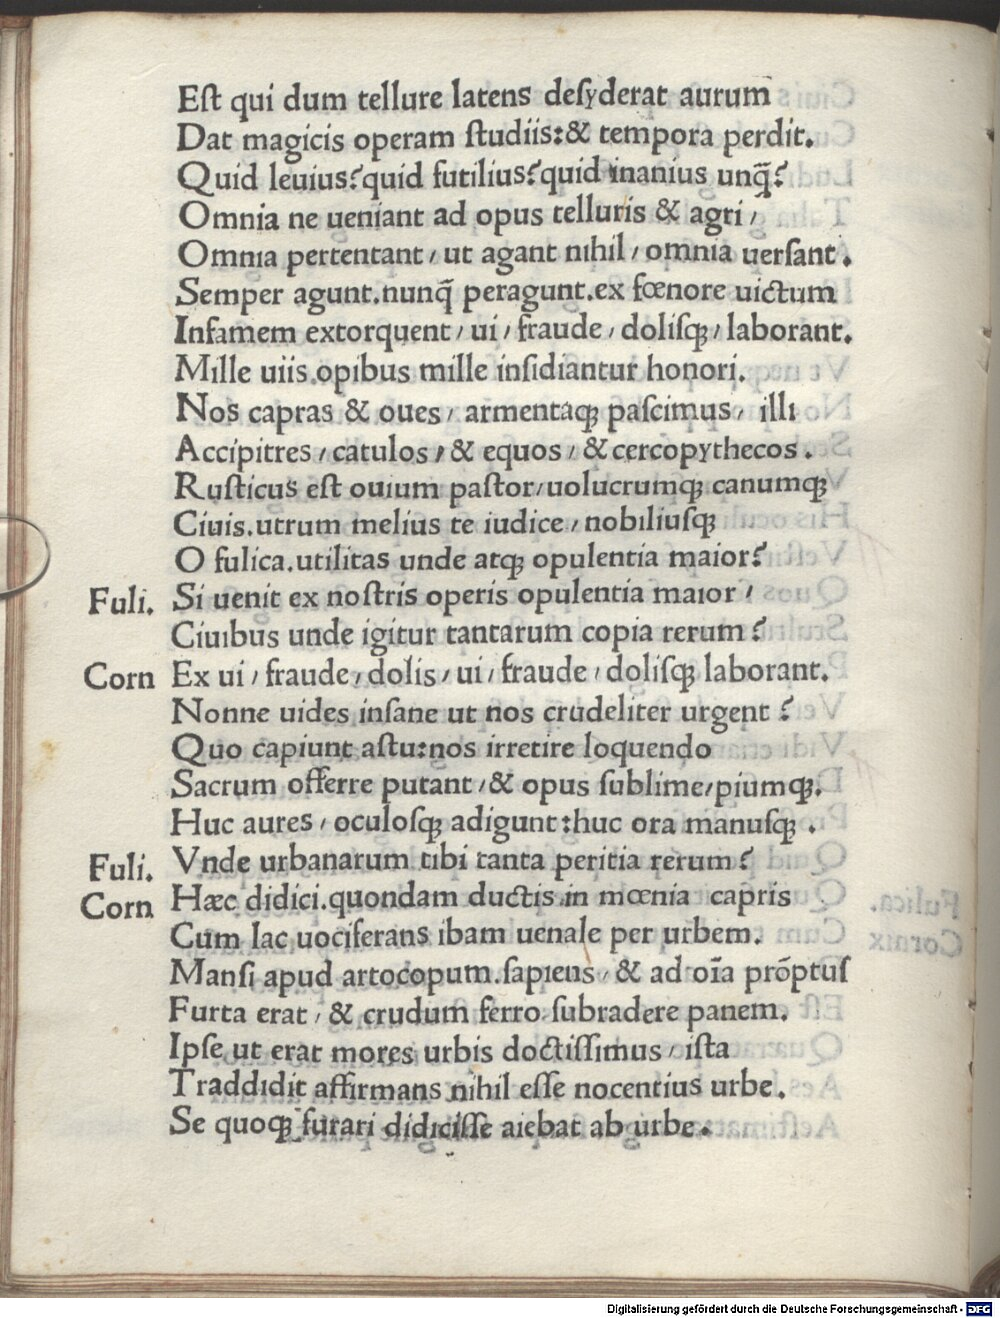 Eſt qui dum tellure latens deſyderat aurum
Dat magicis operam ſtudiis:& tempora perdit.
Quid leuius?quid futilius?quid inanius unq̃?
Omnia ne ueniant ad opus telluris & agri /
Omnia pertentant / ut agant nihil / omnia uerſant.
Semper agunt.nunq̃ peragunt.ex fœnore uictum
Infamem extorquent / ui / fraude / doliſqꝫ / laborant.
Mille uiis.opibus mille inſidiantur honori.
Nos capras & oues / armentaqꝫ paſcimus / illi
Accipitres / catulos / & equos / & cercopythecos.
Ruſticus eſt ouium paſtor / uolucrumqꝫ canumqꝫ
Ciuis.utrum melius te iudice / nobiliuſqꝫ
O fulica.utilitas unde atqꝫ opulentia maior?
Fuli. Si uenit ex noſtris operis opulentia maior /
Ciuibus unde igitur tantarum copia rerum?
Corn Ex ui / fraude / dolis / ui / fraude / doliſqꝫ laborant.
Nonne uides inſane ut nos crudeliter urgent?
Quo capiunt aſtu:nos irretire loquendo
Sacrum offerre putant / & opus ſublime / piumqꝫ.
Huc aures / oculoſqꝫ adigunt:huc ora manuſqꝫ.
Fuli. Vnde urbanarum tibi tanta peritia rerum?
Corn Hæc didici.quondam ductis in mœnia capris
Cum lac uociferans ibam uenale per urbem.
Manſi apud artocopum.ſapiens / & ad oĩa prõptuſ
Furta erat / & crudum ferro ſubradere panem.
Ipſe ut erat mores urbis doctiſſimus / iſta
Traddidit affirmans nihil eſſe nocentius urbe.
Se quoqꝫ furari didiciſſe aiebat ab urbe.
Digitalisierung gefördert durch die Deutsche Forschungsgemeinschaft - DFG